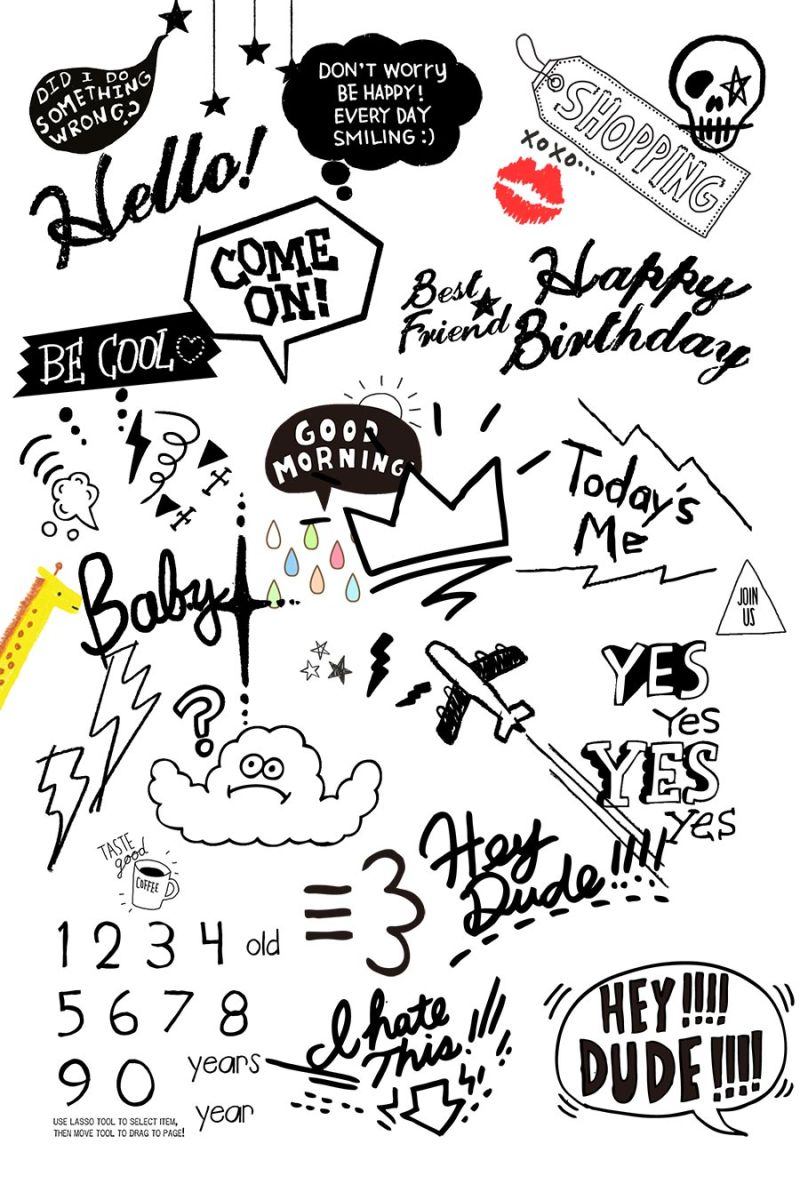 DID I DO
SOMETHING
WRONG?
DON'T WORRY
BE HAPPY!
EVERY DAY
SMILING:)
SHOPPING
XOXO...
Hello!
COME
ON!
Best
Friend
Happy
Birthday
BE COOL
GOOD
MORNING
Today's
Me
Baby
JOIN
US
?
YES
Yes
YES
yes
TASTE
good
COFFEE
Hey
Dude!!!!
1 2 3 4 old
5 6 7 8
9 0 years
year
I hate
This!!!
HEY!!!!
DUDE!!!!
USE LASSO TOOL TO SELECT ITEM,
THEN MOVE TOOL TO DRAG TO PAGE!